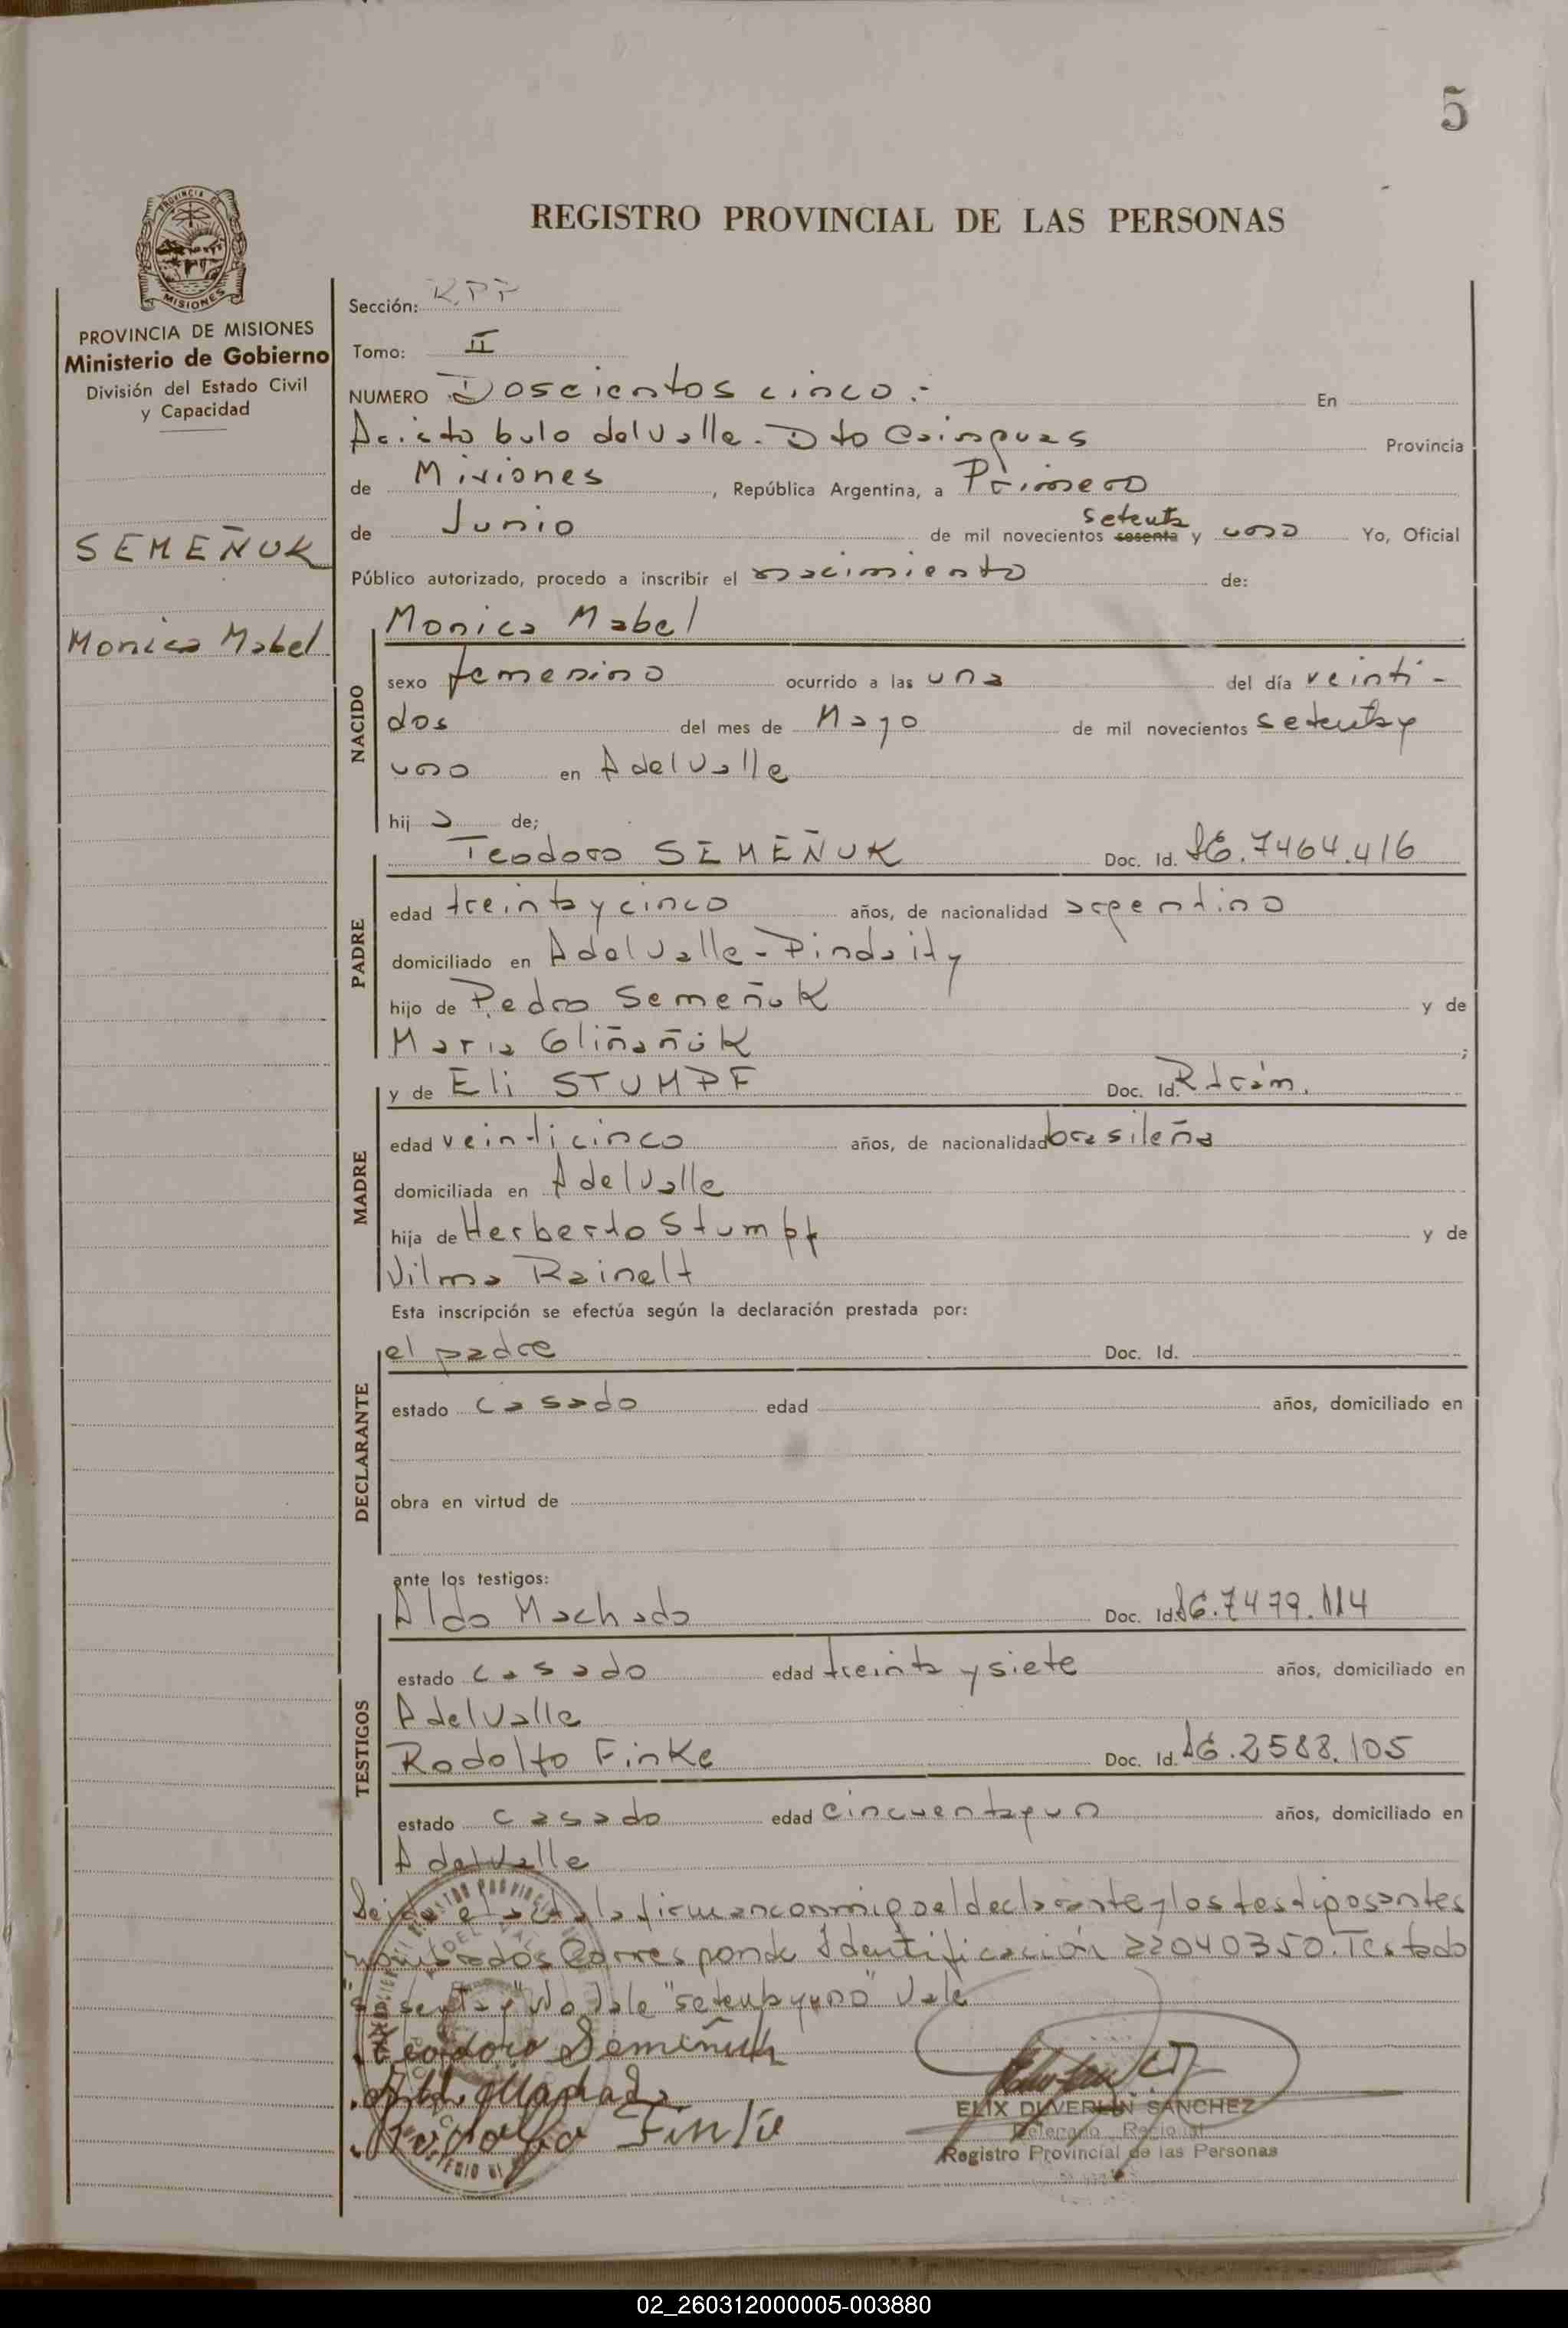 5
REGISTRO PROVINCIAL DE LAS PERSONAS
PROVINCIA DE MISIONES
Ministerio de Gobierno
División del Estado Civil
y Capacidad
SEMEÑUK
Monica Mabel
Sección: R.P.P
Tomo: II
NUMERO Doscientos cinco.- En
Aristobulo del Valle. Dto Cainguas Provincia
de Misiones, República Argentina, a Primero
de Junio de mil novecientos sesenta setenta y uno Yo, Oficial
Público autorizado, procedo a inscribir el nacimiento de:
NACIDO
Monica Mabel
sexo femenino ocurrido a las una del día veinti-
dos del mes de Mayo de mil novecientos setenta y
uno en A del Valle
hij a de;
PADRE
Teodoro SEMEÑUK Doc. Id. 7464.416
edad treinta y cinco años, de nacionalidad argentino
domiciliado en A del Valle - Pindaity
hijo de Pedro Semeñuk y de
Maria Gliñañuk ;
MADRE
y de Eli STUMPF Doc. Id.
edad veinticinco años, de nacionalidad brasileña
domiciliada en A del Valle
hija de Herberto Stumpf y de
Vilma Rainelt
Esta inscripción se efectúa según la declaración prestada por:
DECLARANTE
el padre Doc. Id.
estado casado edad años, domiciliado en
obra en virtud de
ante los testigos:
TESTIGOS
Aldo Machado Doc. Id. 7479.114
estado casado edad treinta y siete años, domiciliado en
A del Valle
Rodolfo Finke Doc. Id. 2588.105
estado casado edad cincuenta y un años, domiciliado en
A del Valle
Leida el acta la firman conmigo el declarante y los testigos antes
nombrados Corresponde Identificación 22040350. Testado
"sesenta y" No Vale "setenta y uno" Vale
Teodoro Semeñuk
Aldo Machado
Rodolfo Finke
ELIX DUVERLIN SANCHEZ
Delegado Regional
Registro Provincial de las Personas
02_260312000005-003880